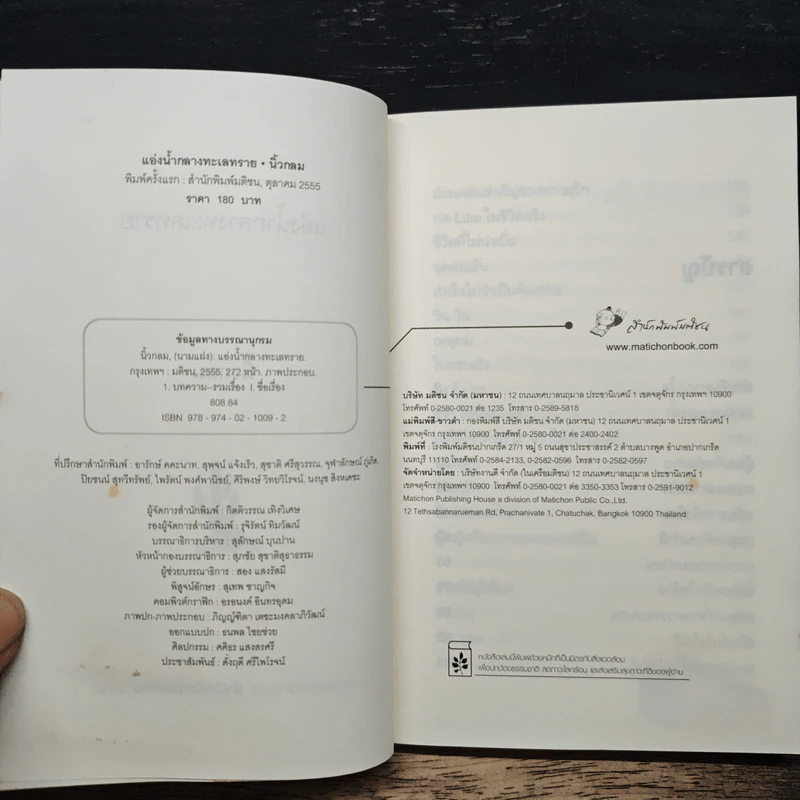 แอ่งน้ำกลางทะเลทราย • นิ้วกลม
พิมพ์ครั้งแรก : สำนักพิมพ์มติชน, ตุลาคม 2555
ราคา 180 บาท
ข้อมูลทางบรรณานุกรม
นิ้วกลม, (นามแฝง). แอ่งน้ำกลางทะเลทราย.
กรุงเทพฯ : มติชน, 2555, 272 หน้า. ภาพประกอบ.
1. บทความ--รวมเรื่อง I. ชื่อเรื่อง
808.84
ISBN 978 - 974 - 02 - 1009 - 2
ที่ปรึกษาสำนักพิมพ์ : อารักษ์ คคะนาท, สุพจน์ แจ้งเร็ว, สุชาติ ศรีสุวรรณ, จุฬาลักษณ์ ภู่เกิด,
ปิยชนน์ สุทวีทรัพย์, ไพรัตน์ พงศ์พานิชย์, ศิริพงษ์ วิทยวิโรจน์, นงนุช สิงหเดชะ
ผู้จัดการสำนักพิมพ์ : กิตติวรรณ เทิงวิเศษ
รองผู้จัดการสำนักพิมพ์ : รุจิรัตน์ ทิมวัฒน์
บรรณาธิการบริหาร : สุลักษณ์ บุนปาน
หัวหน้ากองบรรณาธิการ : สุภชัย สุชาติสุธาธรรม
ผู้ช่วยบรรณาธิการ : สอง แสงรัสมี
พิสูจน์อักษร : สุเทพ ชาญกิจ
คอมพิวต์กราฟิก : อรอนงค์ อินทรอุดม
ภาพปก-ภาพประกอบ : ภิญญ์ฑิตา เตชะมงคลาภิวัฒน์
ออกแบบปก : ธนพล ไชยช่วย
ศิลปกรรม : ศศิธร แสงสรศรี
ประชาสัมพันธ์ : สั่งฤดี ศรีไพโรจน์
สำนักพิมพ์มติชน
www.matichonbook.com
บริษัท มติชน จำกัด (มหาชน) : 12 ถนนเทศบาลนฤมาล ประชานิเวศน์ 1 เขตจตุจักร กรุงเทพฯ 10900
โทรศัพท์ 0-2580-0021 ต่อ 1235 โทรสาร 0-2589-5818
แม่พิมพ์สี-ขาวดำ : กองพิมพ์สี บริษัท มติชน จำกัด (มหาชน) 12 ถนนเทศบาลนฤมาล ประชานิเวศน์ 1
เขตจตุจักร กรุงเทพฯ 10900 โทรศัพท์ 0-2580-0021 ต่อ 2400-2402
พิมพ์ที่ : โรงพิมพ์มติชนปากเกร็ด 27/1 หมู่ 5 ถนนสุขาประชาสรรค์ 2 ตำบลบางพูด อำเภอปากเกร็ด
นนทบุรี 11110 โทรศัพท์ 0-2584-2133, 0-2582-0596 โทรสาร 0-2582-0597
จัดจำหน่ายโดย : บริษัทงานดี จำกัด (ในเครือมติชน) 12 ถนนเทศบาลนฤมาล ประชานิเวศน์ 1
เขตจตุจักร กรุงเทพฯ 10900 โทรศัพท์ 0-2580-0021 ต่อ 3350-3353 โทรสาร 0-2591-9012
Matichon Publishing House a division of Matichon Public Co.,Ltd.
12 Tethsabannarueman Rd, Prachanivate 1, Chatuchak, Bangkok 10900 Thailand
หนังสือเล่มนี้พิมพ์ด้วยหมึกที่เป็นมิตรกับสิ่งแวดล้อม
เพื่อปกป้องธรรมชาติ ลดภาวะโลกร้อน และส่งเสริมสุขภาวะที่ดีของผู้อ่าน